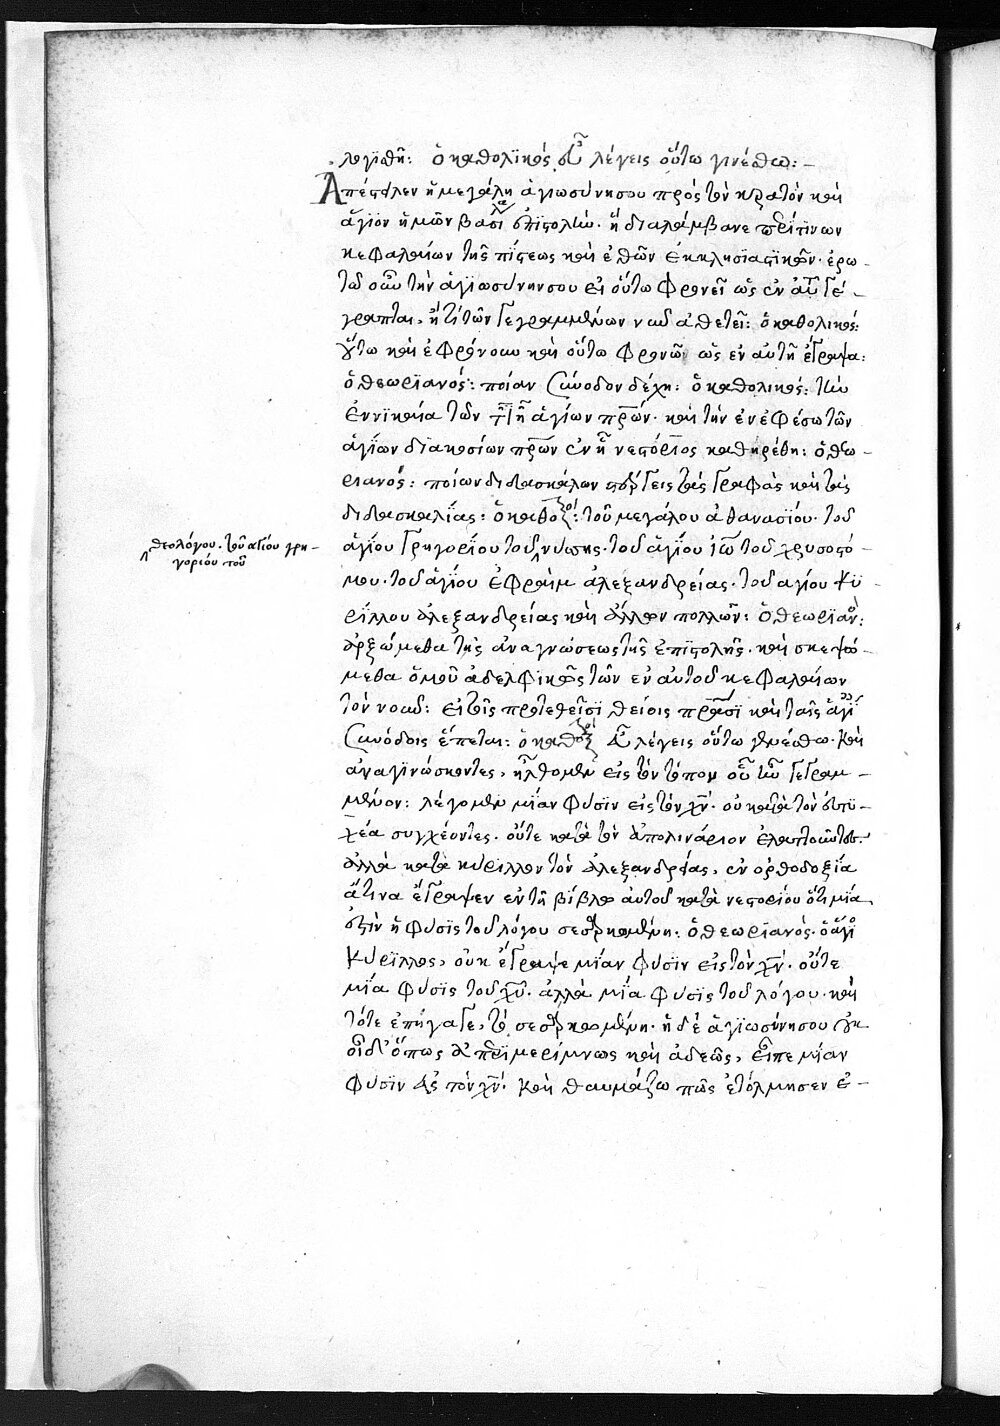 λογϊσθῆ: ὁ καθολϊκός εὖ λέγεις οὕτω γινέσθω: –
Ἀπέστειλεν ἡ μεγάλη ἁγιωσύνη σου πρὸς τὸν κραταιὸν καὶ
ἅγϊον ἡμῶν βασιλέα ἐπϊστολὴν. ἣ διαλάμβανε περί τινων
κεφαλαίων τῆς πίστεως καὶ ἐθῶν ἐκκλησϊαστικῶν. ἐρω –
τῶ οὖν τὴν ἁγϊωσύνην σου εἰ οὕτω φρονεῖ ὡς ἐν αὐτῇ γέ –
γραπται, ἤ τι τῶν γεγραμμένων νῦν ἀθετεῖ: ὁ καθολικός:
οὕτω καὶ ἐφρόνουν καὶ οὕτω φρονῶ ὡς ἐν αὐτῇ ἔγραψα:
ὁ θεωρϊανός: ποίαν σύνοδον δέχη: ὁ καθολικός: τὴν
ἐν νϊκαία τῶν τιη ἁγίων πρων. καὶ τὴν ἐν ἐφέσω τῶν
ἁγίων διακοσίων πρων ἐν ἧ νεστόρϊος καθηρέθη: ὁ θεω –
ριανός: ποίων διδασκάλων στέργεις τὰς γραφὰς καὶ τὰς
διδασκαλΐας: ὁ καθολ: τοῦ μεγάλου ἀθανασΐου. τοῦ
ἁγίου γρηγορΐου τοῦ νύσης. τοῦ ἁγΐου ἰω τοῦ χρυσοστό –
θεολόγου. τοῦ ἁγίου γρη –
γορίου τοῦ
μου. τοῦ ἁγΐου ἐφραὶμ ἀλεξανδρείας. τοῦ αγίου κϋ
ρΐλλου ἀλεξανδρείας καὶ ἄλλων πολλῶν: ὁ θεωρϊαν:
ἀρξώμεθα τῆς ἀναγνώσεως τῆς ἐπϊστολῆς. καὶ σκεψώ –
μεθα ὁμοῦ ἀδελφικῶς τῶν ἐν αὐτοῦ κεφαλαίων
τὸν νοῦν: εἰ τοῖς προτεθεῖσϊ θείοις πρασϊ καὶ ταῖς ἁγί
συνόδοις ἕπεται: ὁ καθολ εὖ λέγεις οὕτω γενέσθω. καὶ
ἀναγϊνώσκοντες, ἤλθομεν εἰς τὸν τόπον οὗ ἦν γεγραμ –
μένον: λέγομεν μΐαν φύσϊν εἰς τὸν χν. οὐ κατὰ τὸν εὐτυ –
χέα συγχέοντες. οὔτε κατὰ τὸν ἀπολινάριον ἐλαττοῦντες.
ἀλλὰ κατὰ κύριλλον τὸν ἀλεξανδρείας, ἐν ὀρθοδοξΐα
ἅτινα ἔγραψεν ἐν τῇ βίβλω αὐτοῦ κατὰ νεστορίου ὅτι μία
ἐστὶν ἡ φύσϊς τοῦ λόγου σεσαρκωμένη: ὁ θεωρϊανός. ὁ ἅγϊ
κύρϊλλος, οὐκ ἔγραψε μίαν φύσϊν εἰς τὸν χν. οὔτε
μία φύσϊς τοῦ χυ. ἀλλὰ μΐα φύσϊς τοῦ λόγου. καὶ
τότε ἐπήγαγε, τὸ σεσαρκωμένη. ἡ δέ ἁγϊωσύνη σου οὐκ
οἶδ᾽ ὅπως ἀπεριμερίμνως καὶ ἀδεῶς, εἶπε μίαν
φύσϊν εἰς τὸν χν. καὶ θαυμάζω πῶς ἐτόλμησεν ἐ –